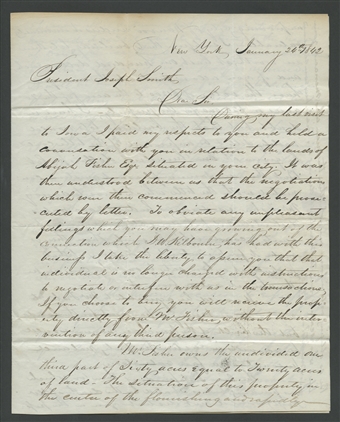 New York, January 24th 1842
President Joseph Smith,
Dear Sir
During my last visit
to Iowa I paid my respects to you and held a
conversation with you in relation to the lands of
Abijah Fisher Esqr. situated in your city. It was
then understood between us that the negotiation
which was then commenced should be prose-
cuted by letter. To obviate any unpleasant
feelings which you may have growing out of the
connexion which D. W. Kilbourn has had with this
business I take the liberty to assure you that that
individual is no longer charged with instructions
to negotiate or interfere with us in the transactions,
If you choose to buy you will receive the prop-
erty directly from Mr Fisher, without the inter-
vention of any third person.
Mr. Fisher owns the undivided one
third part of Sixty acres equal to Twenty acres
of land - The situation of this property in
the center of the flourishing and rapidly